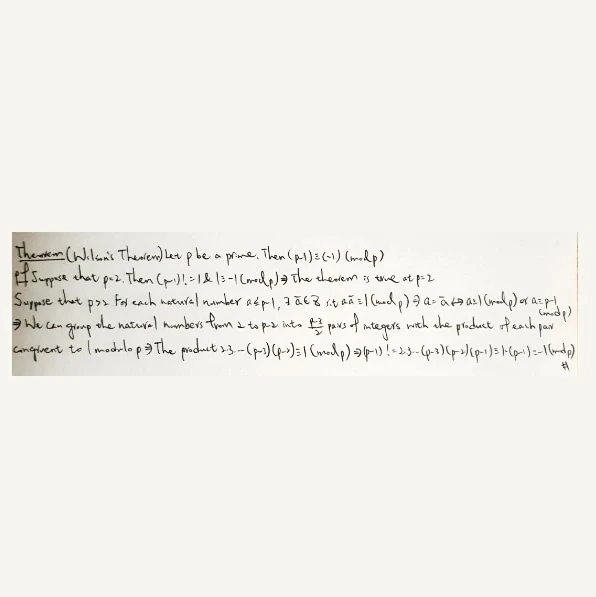 Theorem (Wilson's Theorem) Let p be a prime. Then (p-1)≡(-1) (mod p)
pf Suppose that p=2. Then (p-1)!=1 & 1≡-1(mod p)⇒The theorem is true at p=2
Suppose that p>2 For each natural number a≤p-1, ∃ ā∈ℤ s.t aā≡1(mod p)⇒ a=ā ⇔ a≡1(mod p) or a≡p-1 (mod p)
⇒ We can group the natural numbers from 2 to p-2 into (p-3)/2 pairs of integers with the product of each pair
congruent to 1 modulo p⇒The product 2·3···(p-3)(p-2)≡1(mod p)⇒(p-1)!=2·3···(p-3)(p-2)(p-1)≡1·(p-1)≡-1(mod p)
#